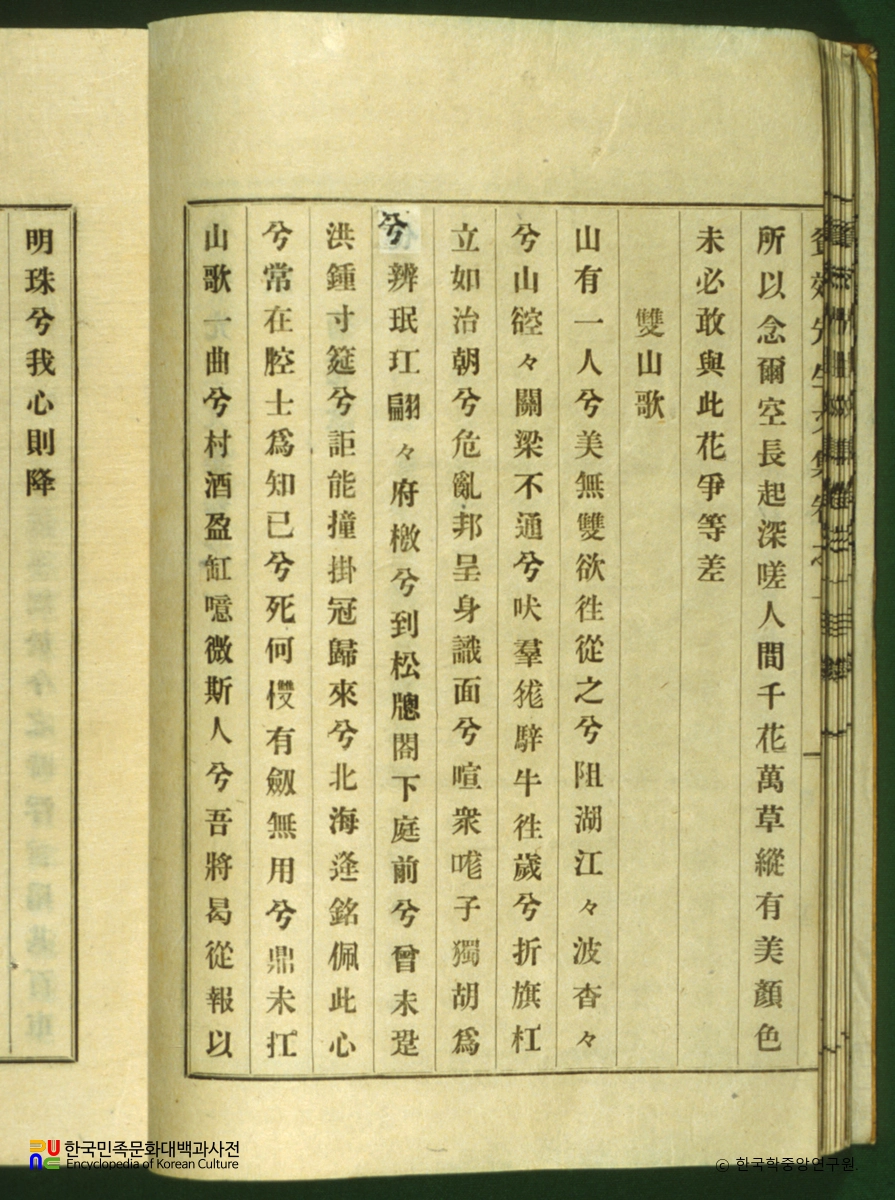 所以念爾空長起深嗟人間千花萬草縱有美顏色
未必敢與此花爭等差
雙山歌
山有一人兮美無雙欲徃從之兮阻湖江々波杳々
兮山硿々關梁不通兮吠羣狵騂牛徃歲兮折旗杠
立如治朝兮危亂邦呈身識面兮喧衆咙子獨胡爲
兮辨珉玒翩々府檄兮到松牕閣下庭前兮曾未跫
洪鍾寸筳兮詎能撞掛冠歸來兮北海逄銘佩此心
兮常在腔士爲知已兮死何㥠有劒無用兮鼎未扛
山歌一曲兮村酒盈缸噫微斯人兮吾將曷從報以
明珠兮我心則降
한국민족문화대백과사전
Encyclopedia of Korean Culture
© 한국학중앙연구원